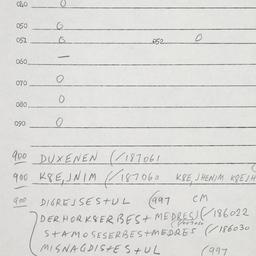 040 0
050 0
051 0 052 0
060 —
070 0
080 0
090 0
900 DUXENEN (/187061
900 K8E,JNIM (/187060 K8E,JHENJM K8EJH
900 DIGREJSES+UL (997 CM
DERHORK8ERBES+MEDRES (/186022
S+AMOSESERBES+MEDRES (/186030
MISNAGDIS+ES+UL (997